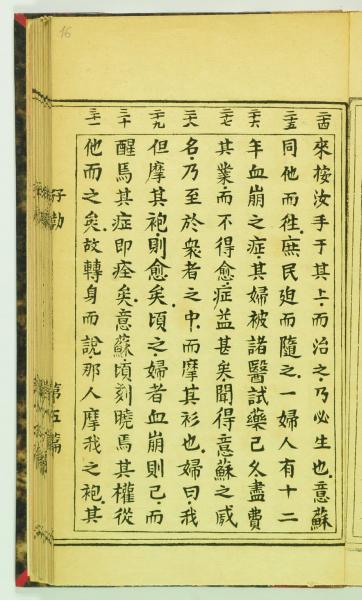 16
二十四 來按汝手于其上、而治之、乃必生也、意蘇
二十五 同他而徃、庶民迫而隨之、一婦人有十二
二十六 年血崩之症、其婦被諸醫試藥已久、盡費
二十七 其業、而不得愈、症益甚矣、聞得意蘇之威
二十八 名、乃至於衆者之中、而摩其衫也、婦曰、我
二十九 但摩其袍則愈矣、頃之、婦者血崩則已、而
三十 醒焉其症即痊矣、意蘇頃刻曉焉其權從
三十一 他而之矣、故轉身而說、那人摩我之袍、其
第五篇